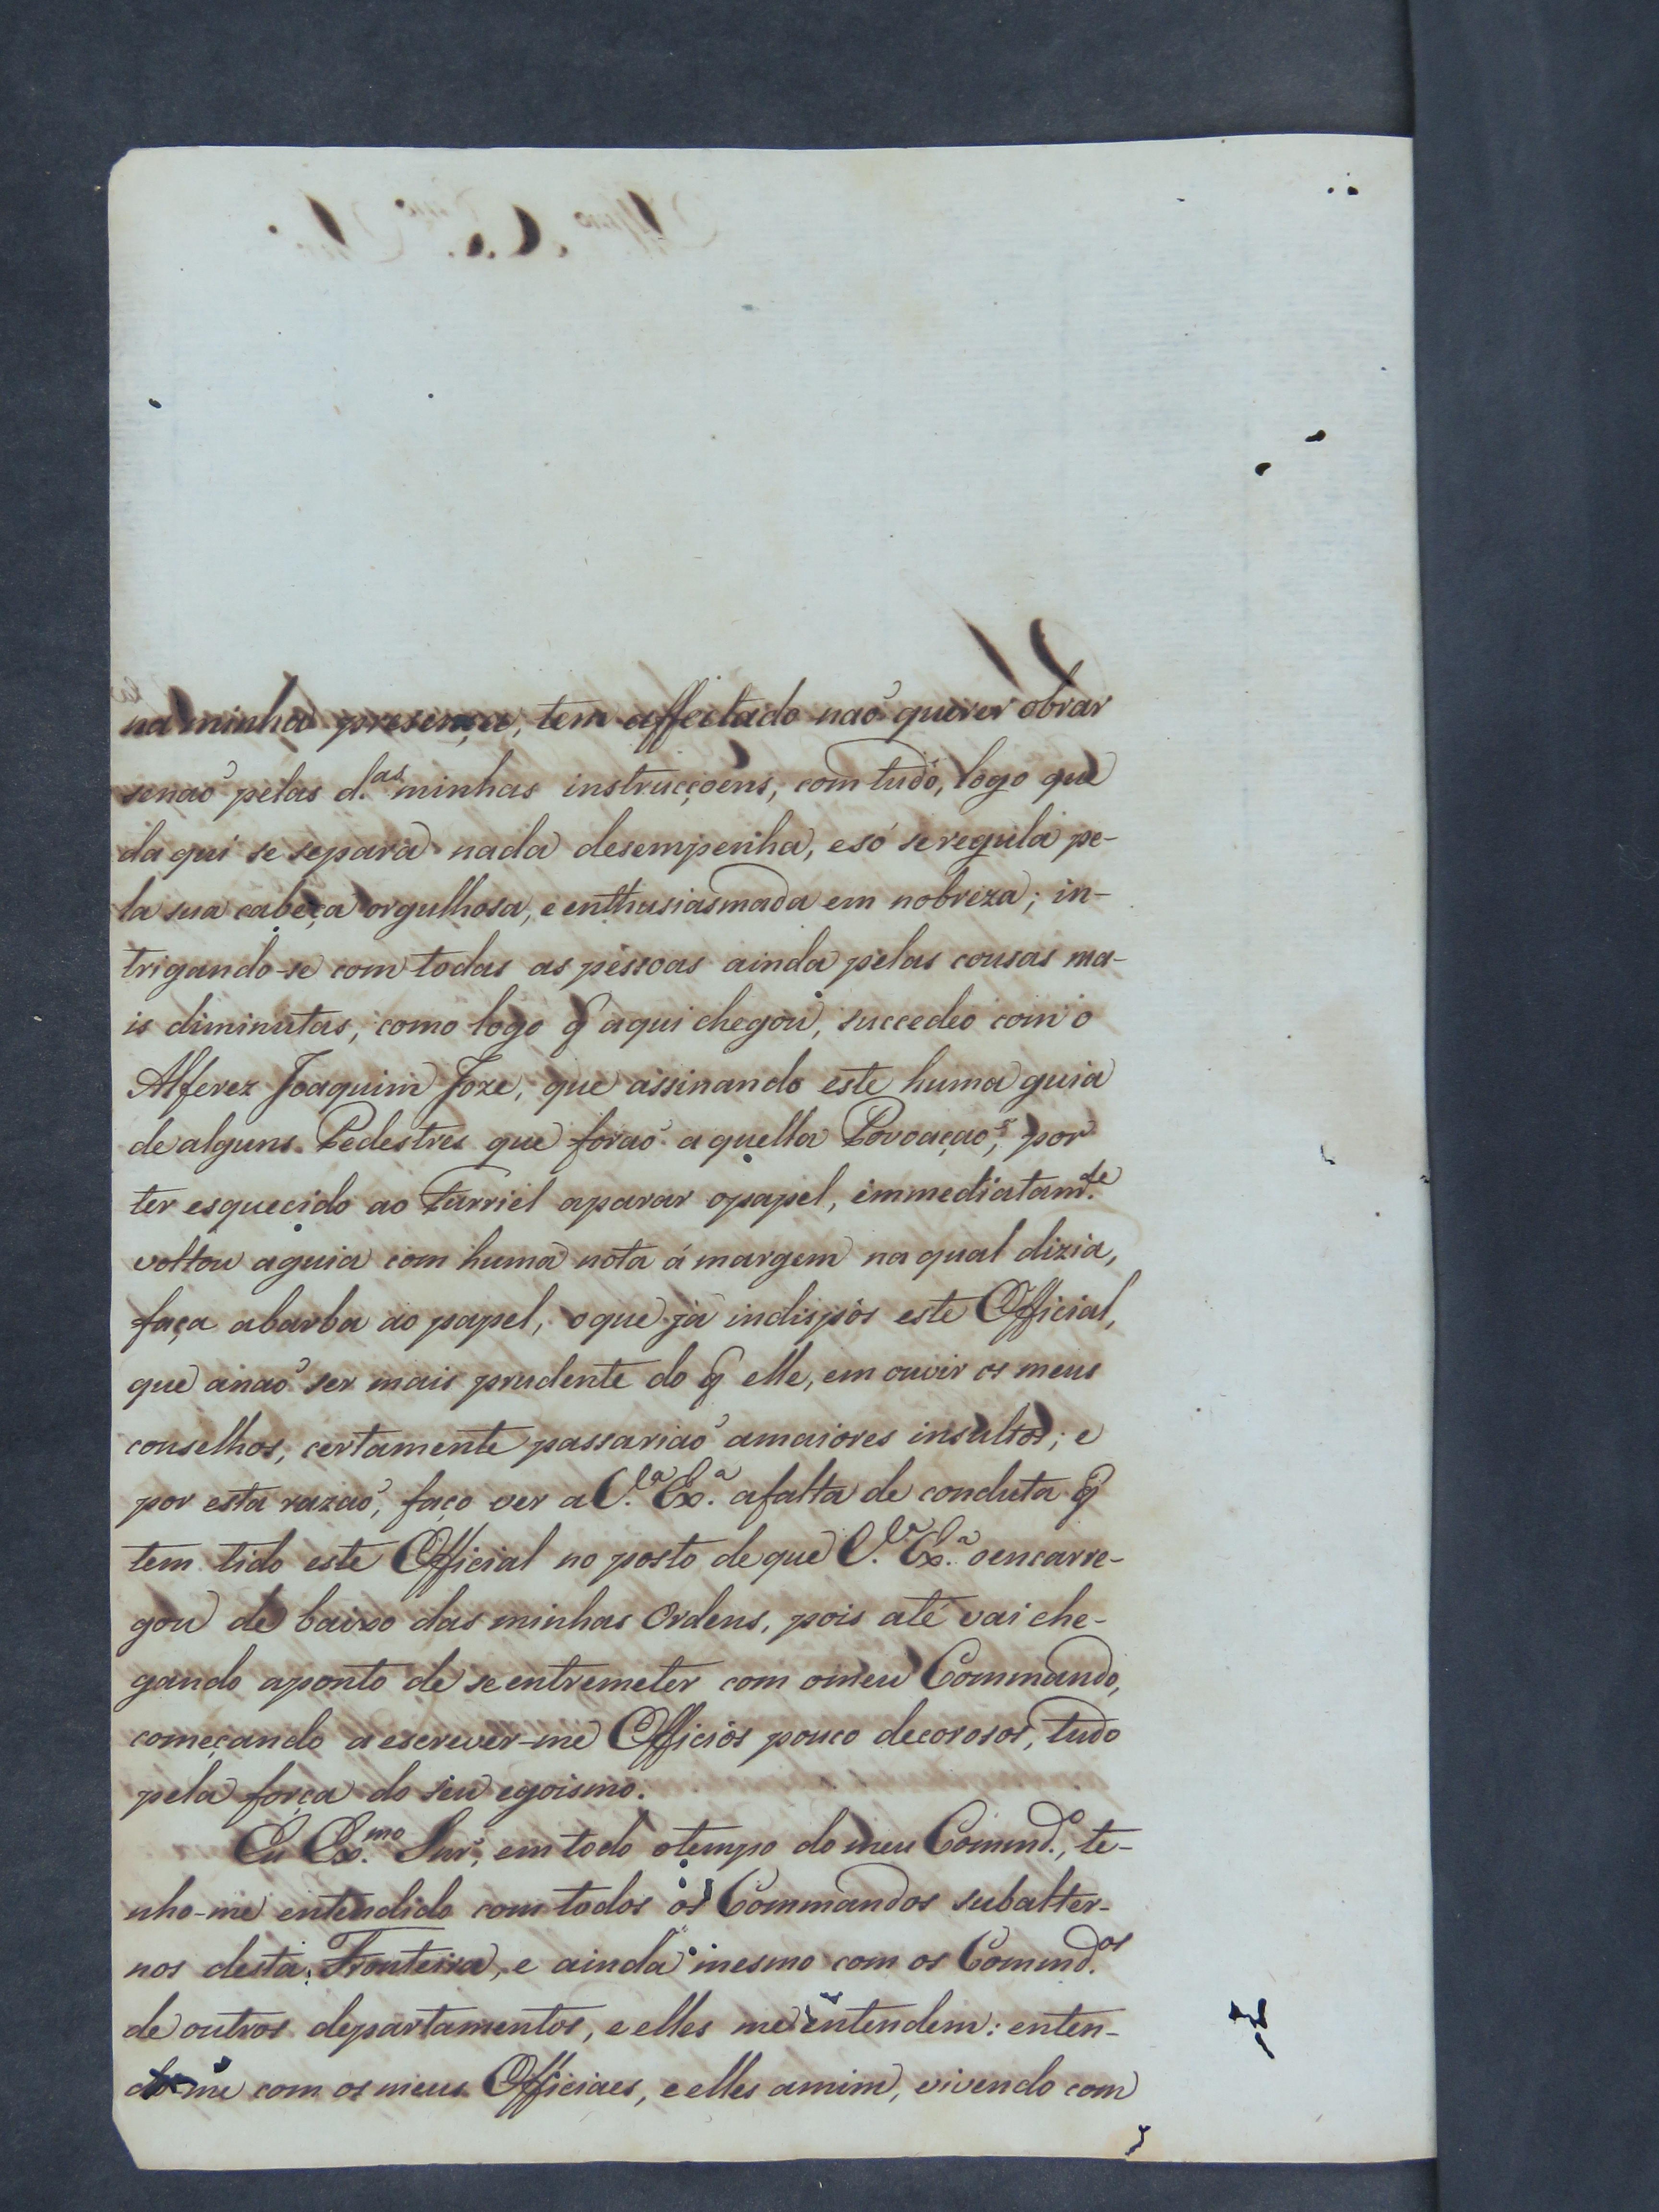 na minha presença, tem affectado naõ querer obrar
senaõ pelas d.as minhas instrucçoens, com tudo, logo que
da qui se separa nada desempenha, e só se regula pe-
la sua cabeça orgulhosa, e enthusiasmada em nobreza; in-
trigando-se com todas as pessoas ainda pelas cousas ma-
is diminutas, como logo q̃ aqui chegou, succedeo com o
Alferez Joaquim Joze, que assinando este huma guia
de alguns Pedestres que foraõ aquella Povoaçaõ, por
ter esquecido ao Furriel aparar opapel, immediatam.te
voltou aguia com huma nota á margem na qual dizia,
faça abarba ao papel, oque já indispôs este Official,
que anaõ ser mais prudente do q̃ elle, em ouvir os meus
conselhos, certamente passariaõ amaiores insultos; e
por esta razaõ, faço ver a V.a Ex.a afalta de conduta q̃
tem tido este Official no posto de que V.a Ex.a oencarre-
gou de baixo das minhas Ordens, pois até vai che-
gando aponto de se entremeter com omeu Commando,
começando a escrever-me Officios pouco decorosos, tudo
pela força do seu egoismo.
Eu Ex.mo Snr', em todo otempo do meu Command.o, te-
nho-me entendido com todos os Commandos subalter-
nos desta Fronteira, e ainda mesmo com os Command.os
de outros departamentos, e elles me entendem: enten-
do-me com os meus Officiaes, e elles amim, vivendo com